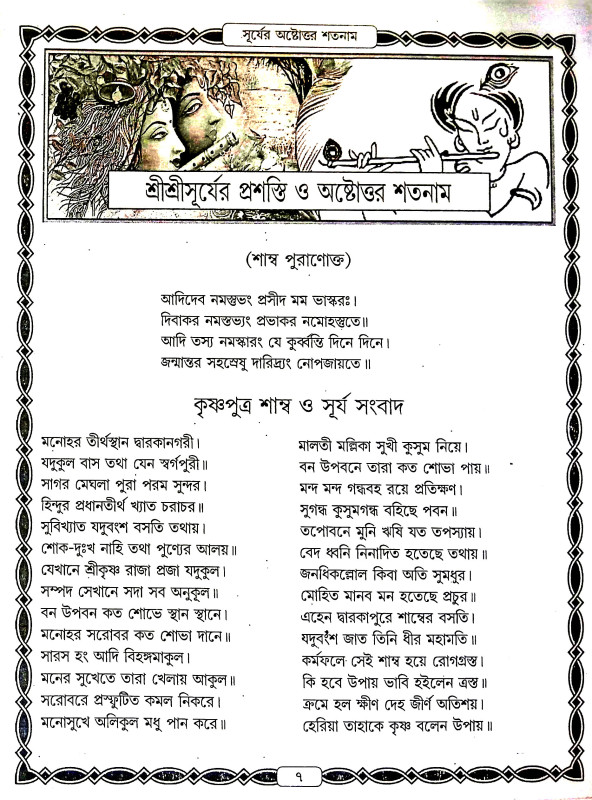 সূর্যের অষ্টোত্তর শতনাম
শ্রীশ্রীসূর্যের প্রশস্তি ও অষ্টোত্তর শতনাম
(শাম্ব পুরাণোক্ত)
আদিদেব নমস্তুভং প্রসীদ মম ভাস্করঃ।
দিবাকর নমস্তভ্যং প্রভাকর নমোহস্তুতে॥
আদি তস্য নমস্কারং যে কুর্ব্বন্তি দিনে দিনে।
জন্মান্তর সহস্রেষু দারিদ্র্যং নোপজায়তে॥
কৃষ্ণপুত্র শাম্ব ও সূর্য সংবাদ
মনোহর তীর্থস্থান দ্বারকানগরী।
যদুকুল বাস তথা যেন স্বর্গপুরী॥
সাগর মেঘলা পুরা পরম সুন্দর।
হিন্দুর প্রধানতীর্থ খ্যাত চরাচর॥
সুবিখ্যাত যদুবংশ বসতি তথায়।
শোক-দুঃখ নাহি তথা পুণ্যের আলয়॥
যেখানে শ্রীকৃষ্ণ রাজা প্রজা যদুকুল।
সম্পদ সেখানে সদা সব অনুকূল॥
বন উপবন কত শোভে স্থান স্থানে।
মনোহর সরোবর কত শোভা দানে॥
সারস হং আদি বিহঙ্গমাকুল।
মনের সুখেতে তারা খেলায় আকুল॥
সরোবরে প্রস্ফুটিত কমল নিকরে।
মনোসুখে অলিকুল মধু পান করে॥
মালতী মল্লিকা সুখী কুসুম নিয়ে।
বন উপবনে তারা কত শোভা পায়॥
মন্দ মন্দ গন্ধবহ রয়ে প্রতিক্ষণ।
সুগন্ধ কুসুমগন্ধ বহিছে পবন॥
তপোবনে মুনি ঋষি যত তপস্যায়।
বেদ ধ্বনি নিনাদিত হতেছে তথায়॥
জনধিকল্লোল কিবা অতি সুমধুর।
মোহিত মানব মন হতেছে প্রচুর॥
এহেন দ্বারকাপুরে শাম্বের বসতি।
যদুবংশ জাত তিনি ধীর মহামতি॥
কর্মফলে সেই শাম্ব হয়ে রোগগ্রস্ত।
কি হবে উপায় ভাবি হইলেন ত্রস্ত॥
ক্রমে হল ক্ষীণ দেহ জীর্ণ অতিশয়।
হেরিয়া তাহাকে কৃষ্ণ বলেন উপায়॥
৭